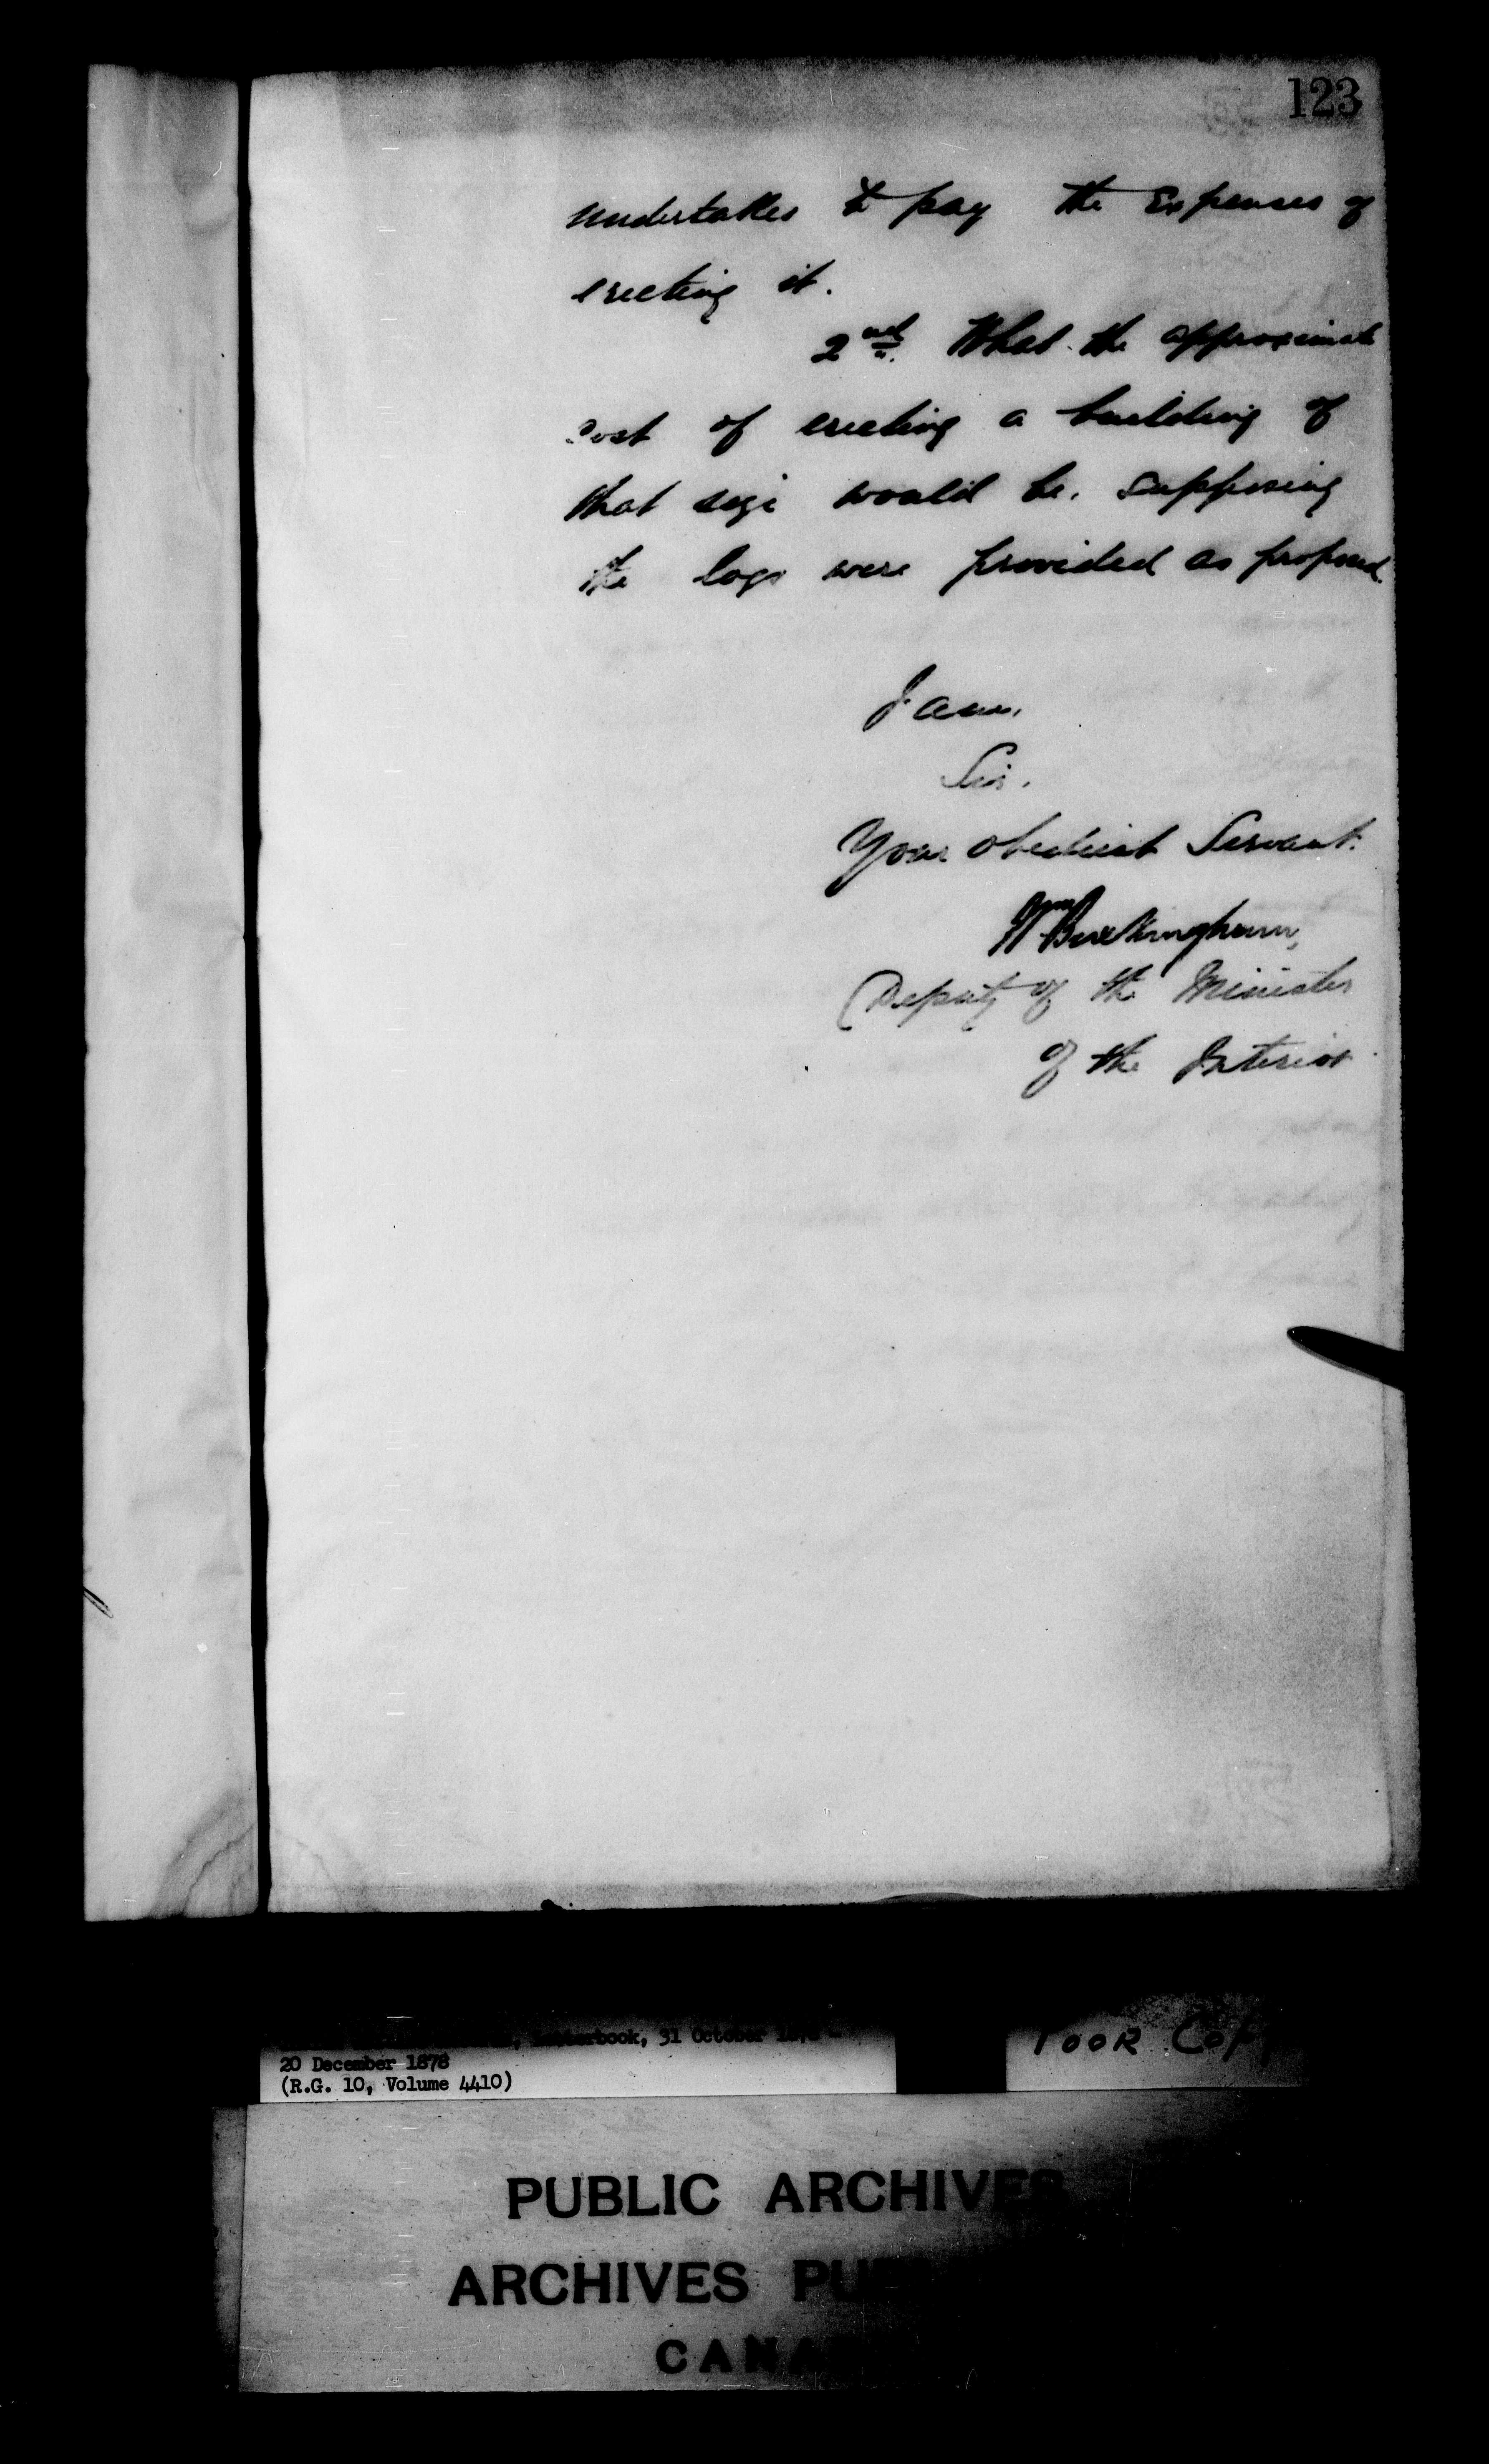 123
undertakes to pay the Expenses of
erecting it.
2nd. What the approximate
Cost of erecting a building of
that size would be, supposing
the logs were provided as proposed.
I am,
Sir,
Your obedient Servant.
Wm Buckingham,
(Deputy of the Minister
of the Interior
Letterbook, 31 October
20 December 1878
(R.G. 10, Volume 4410)
POOR Copy
PUBLIC ARCHIVES
ARCHIVES PU
CANA